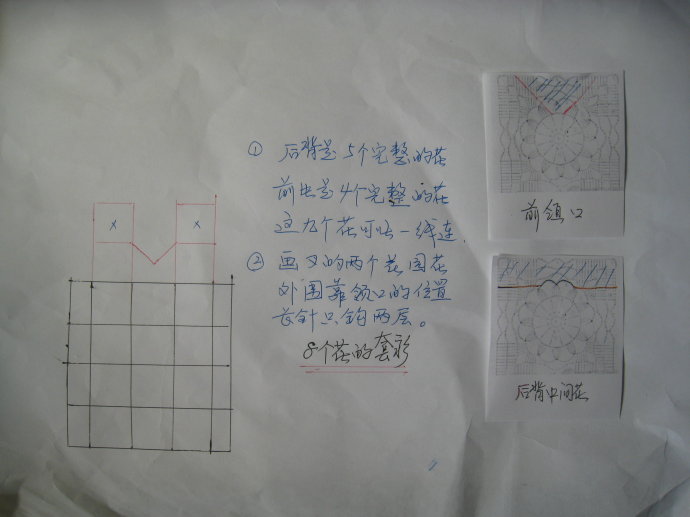 ① 后背是5个完整的花
前片是4个完整的花
这九个花可以一线连.
② 画X的两个花园花
外围靠领口的位置
长针只钩两层。
8个花的套衫
X
X
前领口
后背中间花